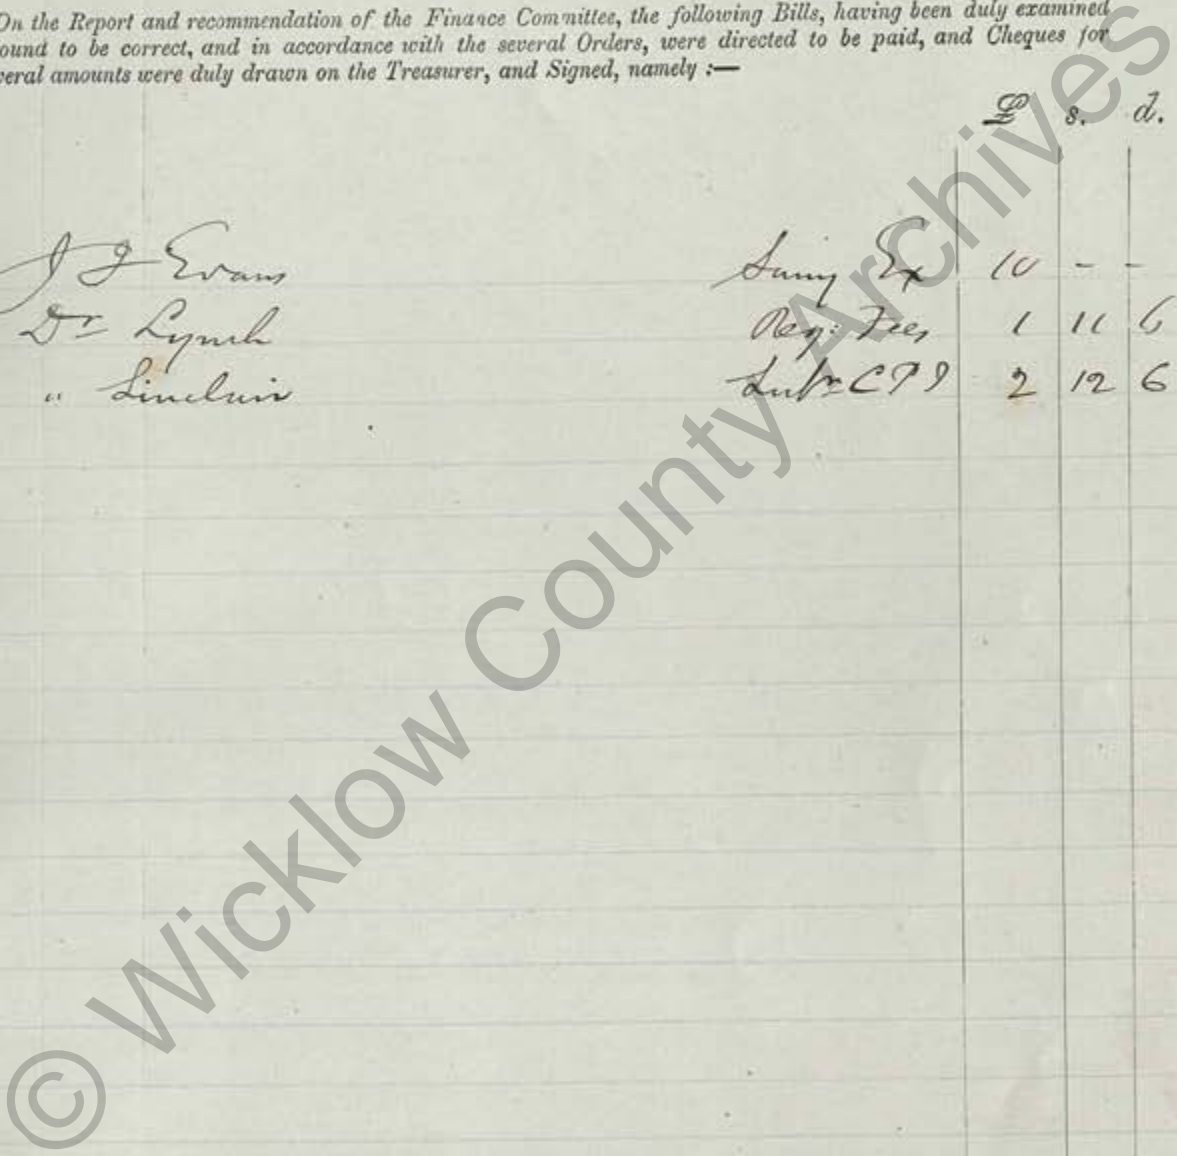 On the Report and recommendation of the Finance Committee, the following Bills, having been duly examined
ound to be correct, and in accordance with the several Orders, were directed to be paid, and Cheques for
veral amounts were duly drawn on the Treasurer, and Signed, namely :—
£ s. d.
J J Evans Ex 10 - -
Dr Lynch Reg: Fees 1 11 6
" Sinclair 2 12 6
© Wicklow County Archives